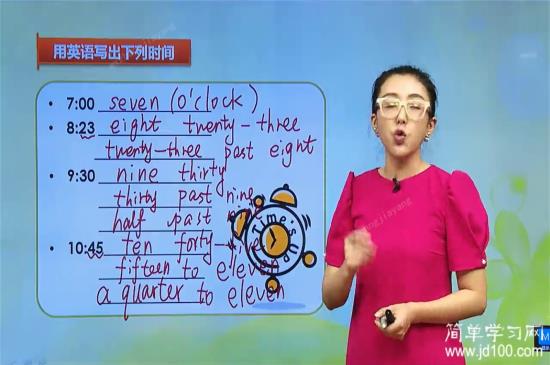 用英语写出下列时间
• 7:00 seven (o'clock)
• 8:23 eight twenty-three
twenty-three past eight
• 9:30 nine thirty
thirty past nine
half past
• 10:45 ten forty-
fifteen to eleven
a quarter to eleven
Time's Up
简单学习网
www.jd100.com